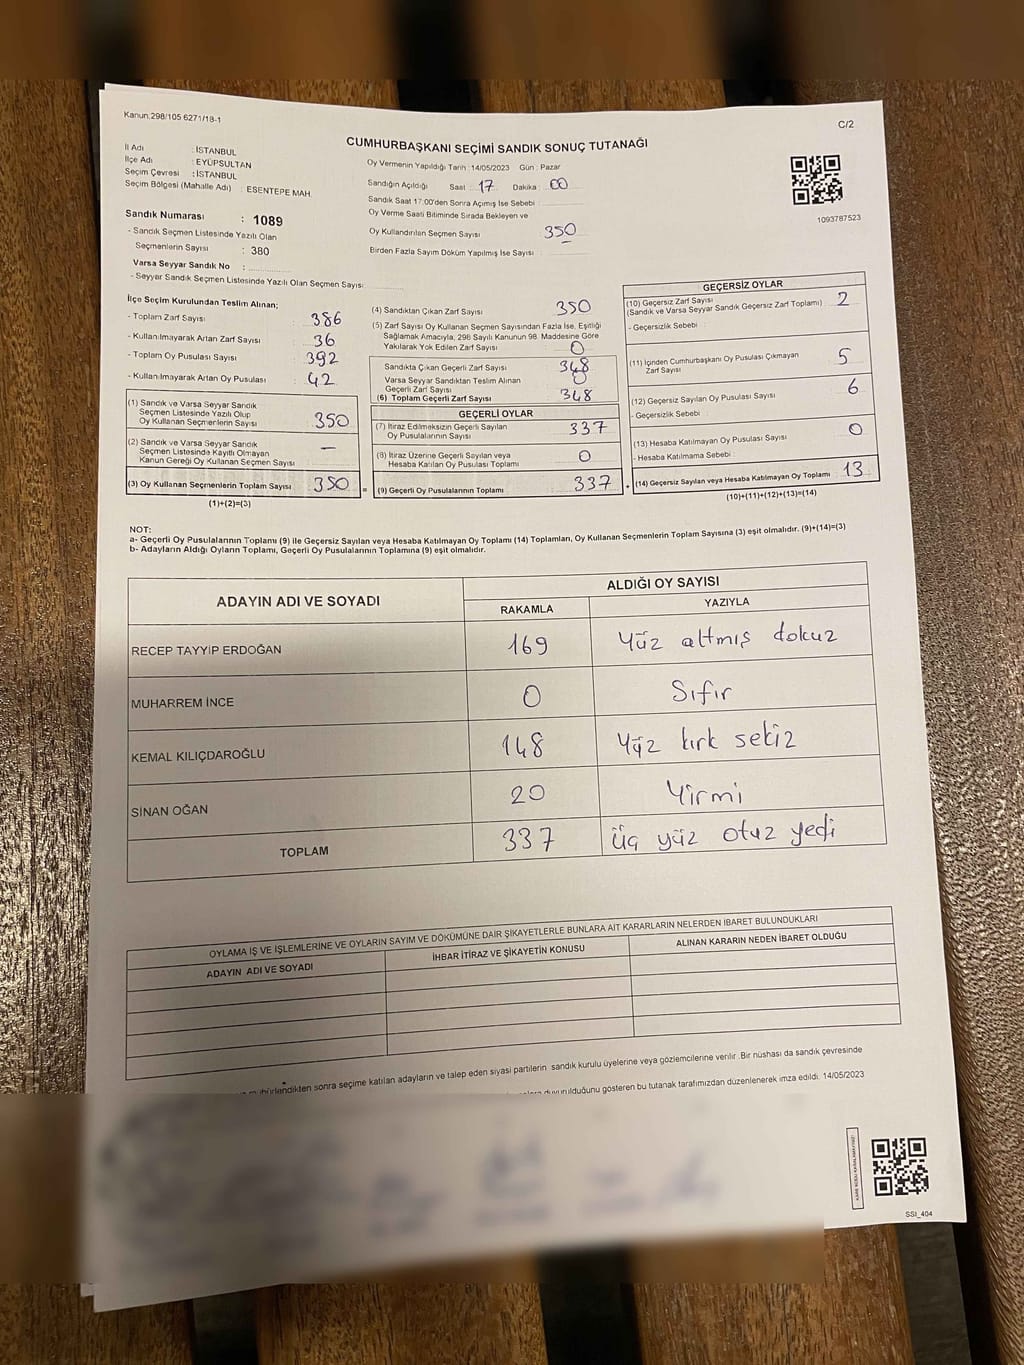 Kanun:298/105 6271/18-1
C/2
CUMHURBAŞKANI SEÇİMİ SANDIK SONUÇ TUTANAĞI
İl Adı : İSTANBUL
İlçe Adı : EYÜPSULTAN
Seçim Çevresi : İSTANBUL
Seçim Bölgesi (Mahalle Adı) : ESENTEPE MAH.
Sandık Numarası : 1089
- Sandık Seçmen Listesinde Yazılı Olan
Seçmenlerin Sayısı : 380
Varsa Seyyar Sandık No :
- Seyyar Sandık Seçmen Listesinde Yazılı Olan Seçmen Sayısı:
Oy Vermenin Yapıldığı Tarih :14/05/2023 Gün : Pazar
Sandığın Açıldığı Saat 17 Dakika : 00
Sandık Saat 17:00'den Sonra Açımış İse Sebebi :
Oy Verme Saati Bitiminde Sırada Bekleyen ve
Oy Kullandırılan Seçmen Sayısı 350
Birden Fazla Sayım Döküm Yapılmış İse Sayısı :
1093787523
İlçe Seçim Kurulundan Teslim Alınan;
- Toplam Zarf Sayısı : 386
- Kullanılmayarak Artan Zarf Sayısı : 36
- Toplam Oy Pusulası Sayısı : 392
- Kullanılmayarak Artan Oy Pusulası : 42
(1) Sandık ve Varsa Seyyar Sandık
Seçmen Listesinde Yazılı Olup
Oy Kullanan Seçmenlerin Sayısı : 350
(2) Sandık ve Varsa Seyyar Sandık
Seçmen Listesinde Kayıtlı Olmayan
Kanun Gereği Oy Kullanan Seçmen Sayısı : —
(3) Oy Kullanan Seçmenlerin Toplam Sayısı : 350
(1)+(2)=(3)
(4) Sandıktan Çıkan Zarf Sayısı : 350
(5) Zarf Sayısı Oy Kullanan Seçmen Sayısından Fazla İse, Eşitliği
Sağlamak Amacıyla, 298 Sayılı Kanunun 98. Maddesine Göre
Yakılarak Yok Edilen Zarf Sayısı : 0
Sandıkta Çıkan Geçerli Zarf Sayısı : 348
Varsa Seyyar Sandıktan Teslim Alınan
Geçerli Zarf Sayısı : 0
(6) Toplam Geçerli Zarf Sayısı : 348
GEÇERLİ OYLAR
(7) İtiraz Edilmeksizin Geçerli Sayılan
Oy Pusulalarının Sayısı : 337
(8) İtiraz Üzerine Geçerli Sayılan veya
Hesaba Katılan Oy Pusulası Toplamı : 0
= (9) Geçerli Oy Pusulalarının Toplamı : 337
GEÇERSİZ OYLAR
(10) Geçersiz Zarf Sayısı : 2
(Sandık ve Varsa Seyyar Sandık Geçersiz Zarf Toplamı)
- Geçersizlik Sebebi :
(11) İçinden Cumhurbaşkanı Oy Pusulası Çıkmayan
Zarf Sayısı : 5
(12) Geçersiz Sayılan Oy Pusulası Sayısı : 6
- Geçersizlik Sebebi :
(13) Hesaba Katılmayan Oy Pusulası Sayısı : 0
- Hesaba Katılmama Sebebi :
+ (14) Geçersiz Sayılan veya Hesaba Katılmayan Oy Toplamı : 13
(10)+(11)+(12)+(13)=(14)
NOT:
a- Geçerli Oy Pusulalarının Toplamı (9) ile Geçersiz Sayılan veya Hesaba Katılmayan Oy Toplamı (14) Toplamları, Oy Kullanan Seçmenlerin Toplam Sayısına (3) eşit olmalıdır. (9)+(14)=(3)
b- Adayların Aldığı Oyların Toplamı, Geçerli Oy Pusulalarının Toplamına (9) eşit olmalıdır.
ADAYIN ADI VE SOYADI
ALDIĞI OY SAYISI
RAKAMLA YAZIYLA
RECEP TAYYİP ERDOĞAN 169 Yüz altmış dokuz
MUHARREM İNCE 0 Sıfır
KEMAL KILIÇDAROĞLU 148 Yüz kırk sekiz
SİNAN OĞAN 20 Yirmi
TOPLAM 337 Üç yüz otuz yedi
OYLAMA İŞ VE İŞLEMLERİNE VE OYLARIN SAYIM VE DÖKÜMÜNE DAİR ŞİKAYETLERLE BUNLARA AİT KARARLARIN NELERDEN İBARET BULUNDUKLARI
ADAYIN ADI VE SOYADI İHBAR İTİRAZ VE ŞİKAYETİN KONUSU ALINAN KARARIN NEDEN İBARET OLDUĞU
mühürlendikten sonra seçime katılan adayların ve talep eden siyasi partilerin sandık kurulu üyelerine veya gözlemcilerine verilir. Bir nüshası da sandık çevresinde
duyurulduğunu gösteren bu tutanak tarafımızdan düzenlenerek imza edildi. 14/05/2023
SSI_404